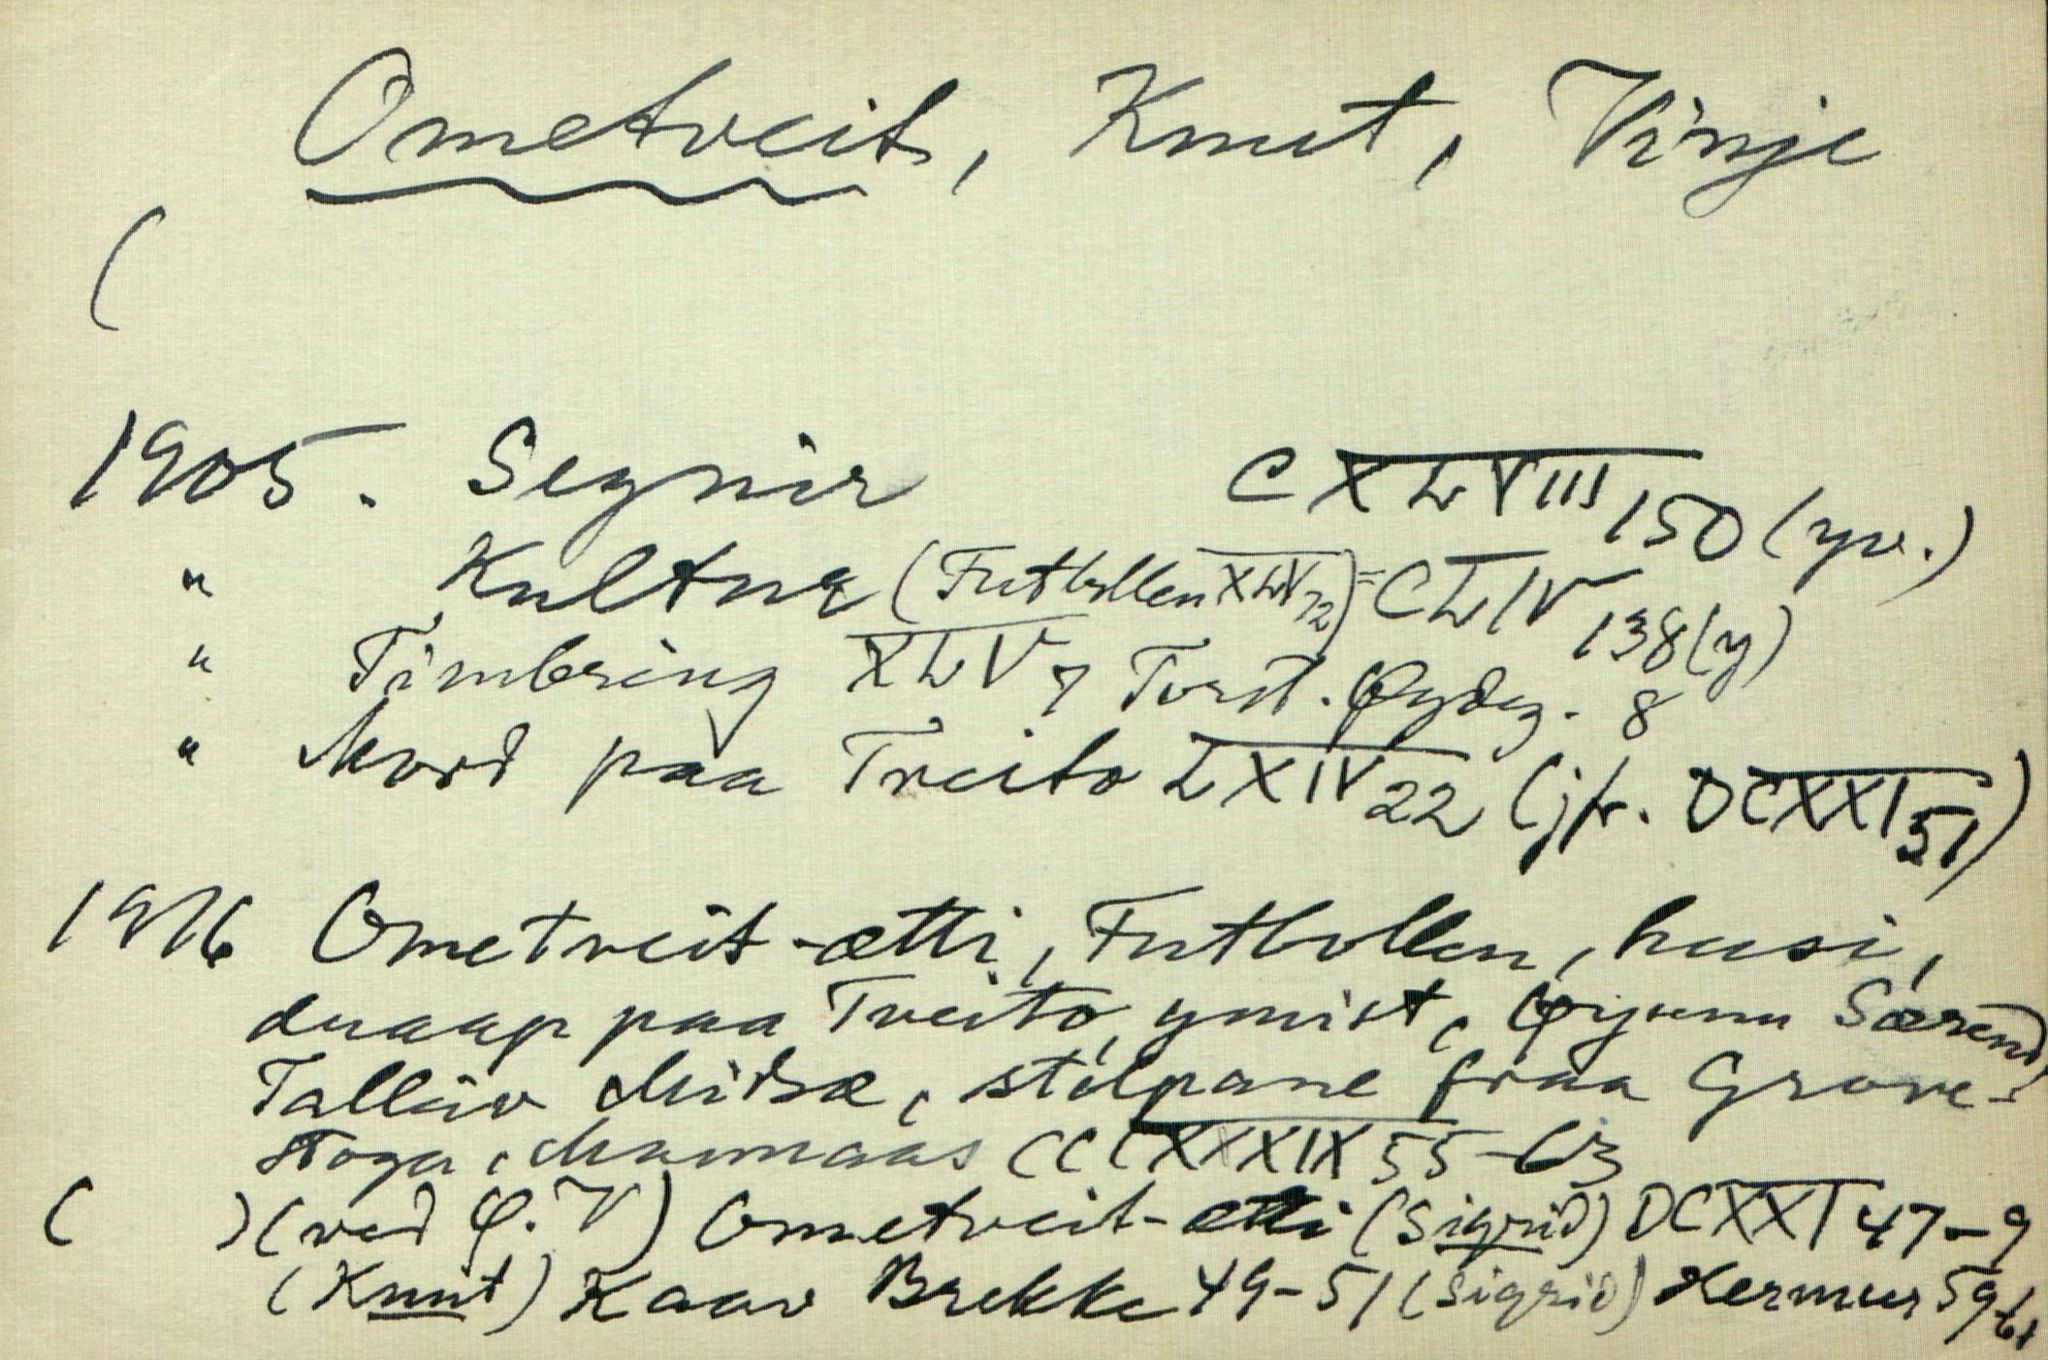 Ometveit, Knut, Vinje
(
1905. Segnir CXLVIII 150 (yv.)
" Kultur (Futbollen XLV 12) = CLIV 138 (y)
" Timbring XLV 7 Torst. Øydg. 8
" Mord paa Tveito LXIV 22 (jfr. DCXXI 51)
1916 Ometveit-ætti, Futbollen, husi,
draap paa Tveito, ymist, Øyunn Særend,
Talleiv Midbæ, stolpane fraa Grove-
stoga, Mannaas CCCXXXIX 55-63
( ) (ved Ø. V) Ometveit-ætti (Sigrid) DCXXI 47-9
(Knut) Kaav Brekke 49-51 (Sigrid) Hermur 59-61